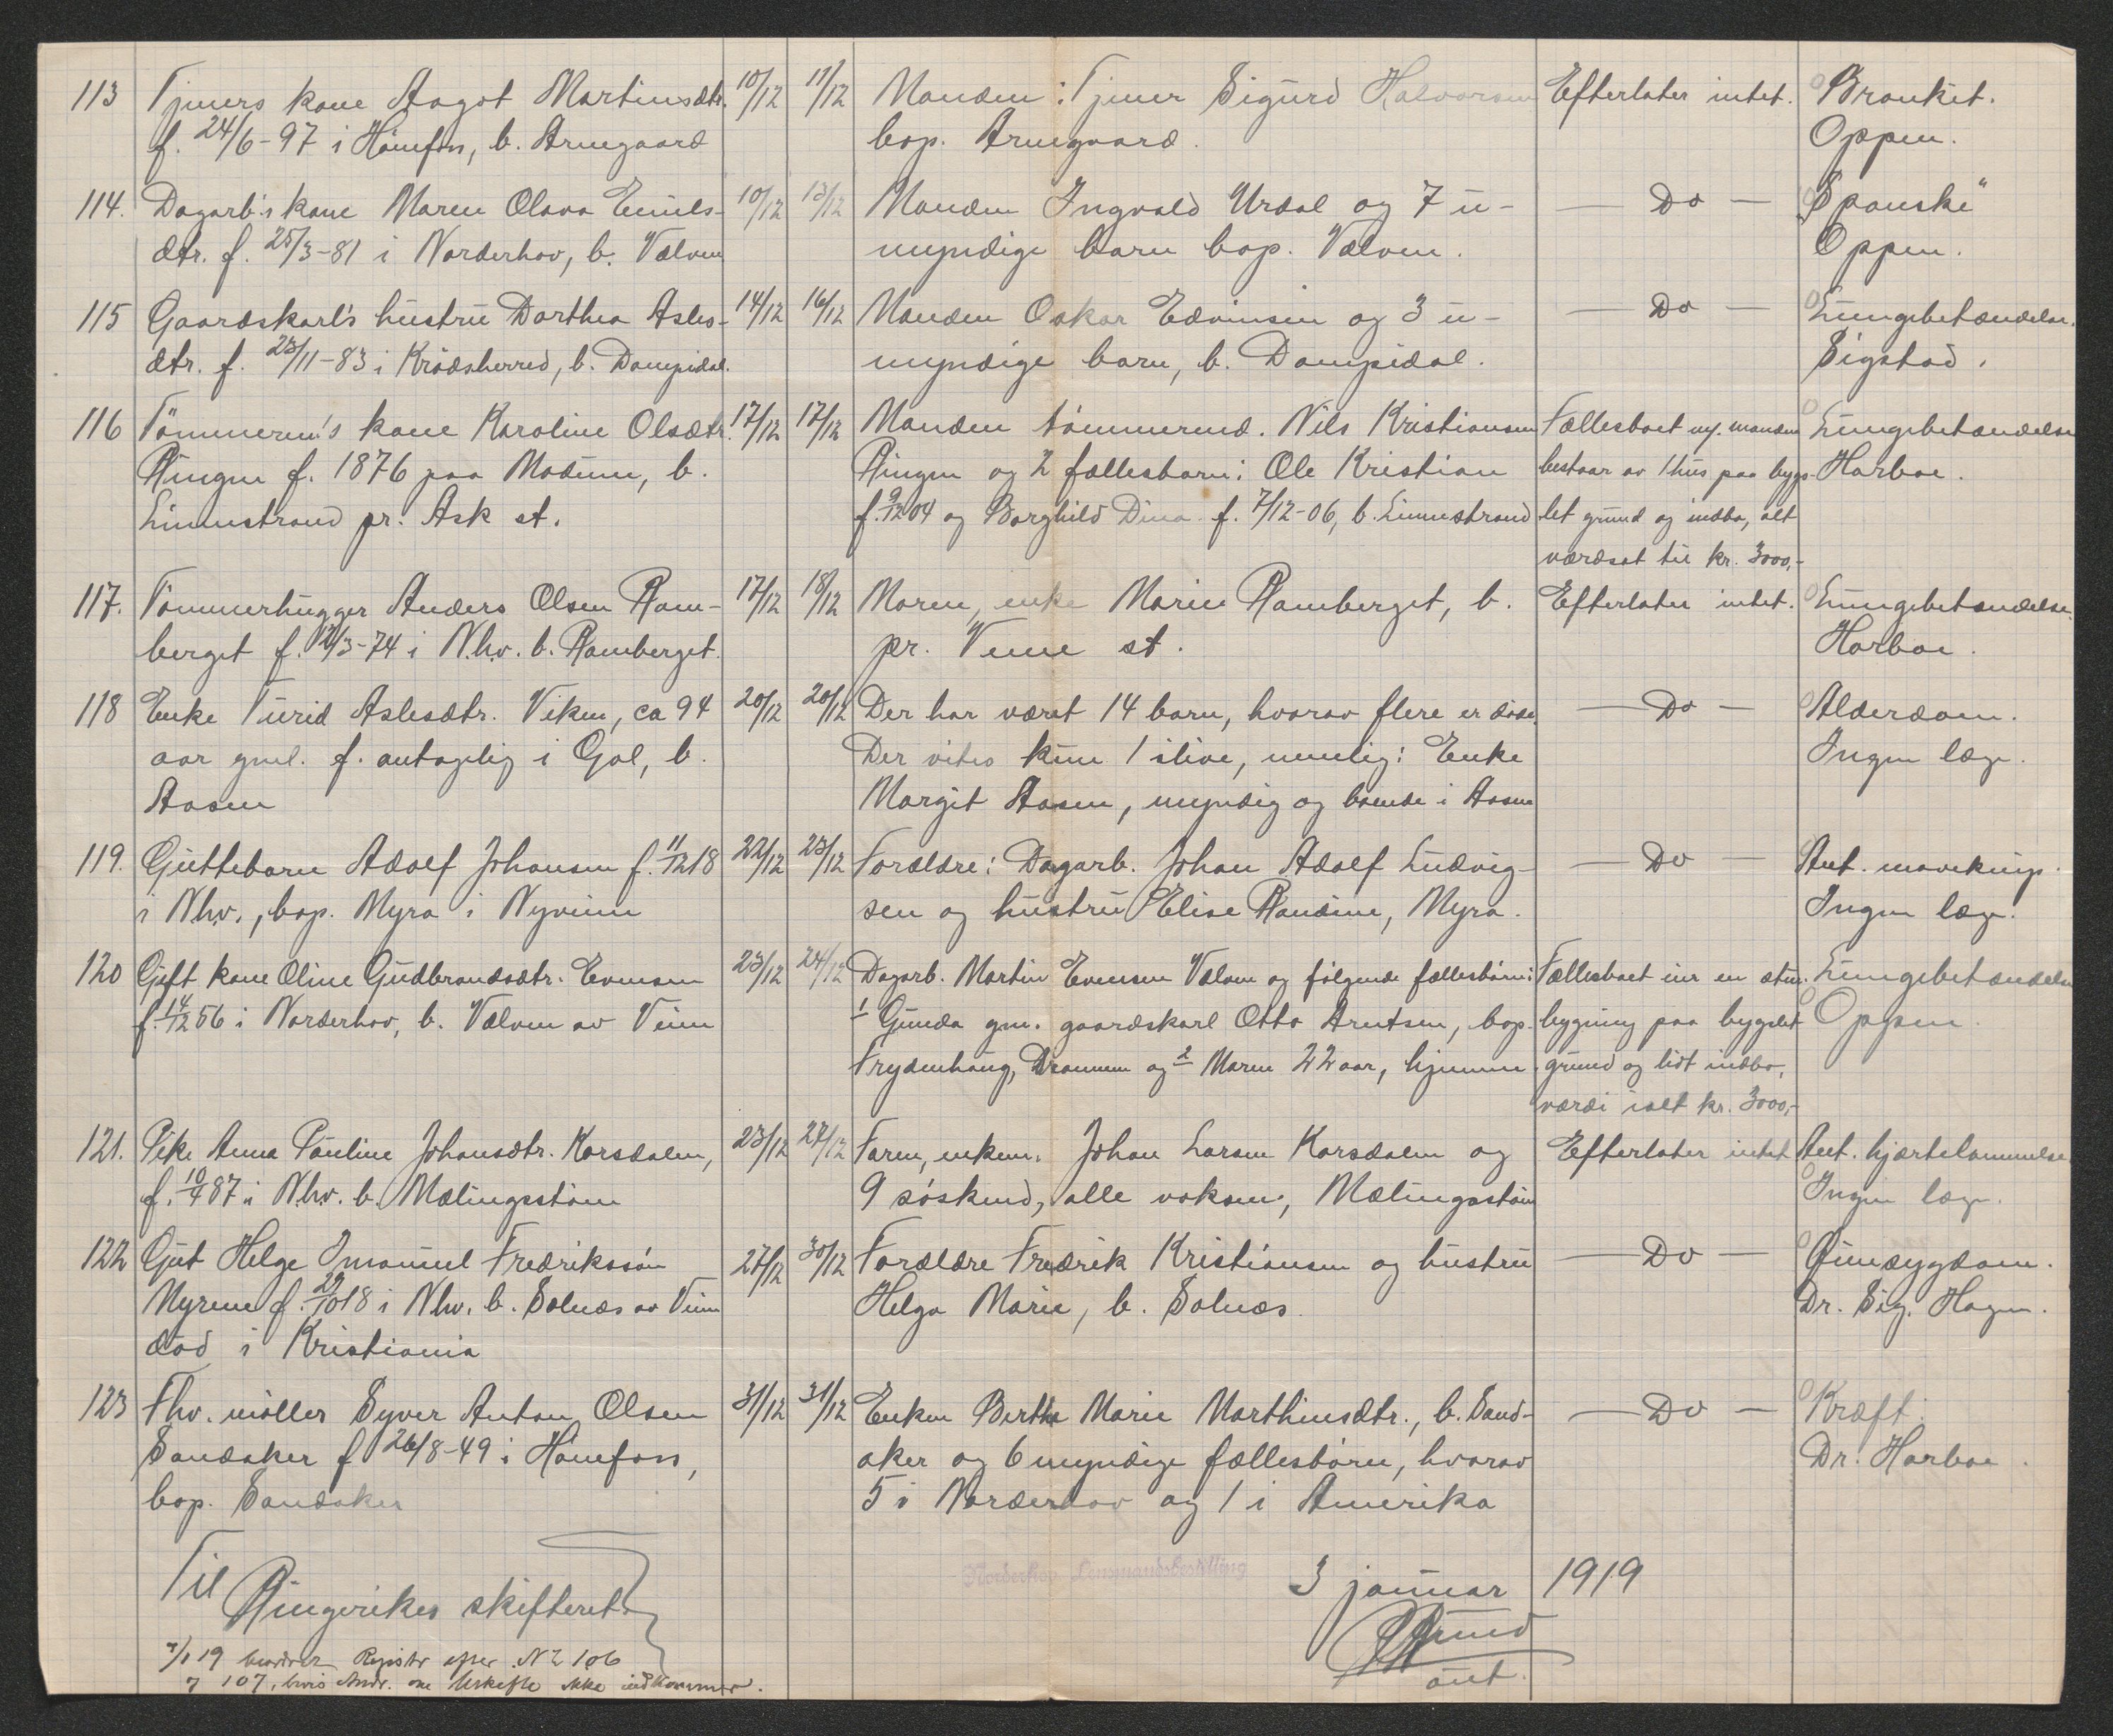 113 Tjeners kone Aagot Martinsdtr. 10/12 11/12 Manden: Tjener Sigurd Halvorsen Efterlater intet. Bronkit.
f. 24/6-97 i Hönefoss, b. Arnegaard bop. Arnegaard. Oppen.
114. Dagarb's kone Maren Olava Emils- 10/12 13/12 Manden Ingvald Urdal og 7 u- — Do — "Spanske"
dtr. f. 25/3-81 i Norderhov, b. Vælven myndige barn bop. Vælven. Oppen.
115 Gaardskarl's hustru Dorthea Asles- 14/12 16/12 Manden Oskar Edvinsen og 3 u- — Do — Lungebetændelse.
dtr. f. 23/11-83 i Krödsherred, b. Dampidal. myndige barn, b. Dampidal. Sigstad.
116 Tömmerm's kone Karoline Olsdtr. 17/12 17/12 Manden tömmermd. Nils Kristiansen Fællesboet m. manden Lungebetændelse
Ringen f. 1876 paa Modum, b. Ringen og 2 fællesbarn: Ole Kristian bestaar av 1 hus paa bygs- Harboe.
Linnestrand pr. Ask st. f. 9/12 04 og Borghild Dina f. 7/12-06, b. Linnestrand let grund og indbo, alt
værdsat til kr. 3000,-
117. Tömmerhugger Anders Olsen Ram- 17/12 18/12 Moren, enke Marie Ramberget, b. Efterlater intet. Lungebetændelse.
berget f. 12/3-74 i N.hv. b. Ramberget. pr. Veme st. Harboe.
118 Enke Turid Aslesdtr. Viken, ca 94 20/12 20/12 Der har været 14 barn, hvorav flere er döde. — Do — Alderdom.
aar gml. f. antagelig i Gol, b. Der vites kun 1 ilive, nemlig: Enke Ingen læge.
Aasen Margit Aasen, myndig og boende i Aasen
119. Guttebarn Adolf Johansen f. 11/12 18 22/12 23/12 Forældre: Dagarb. Johan Adolf Ludvig- — Do — Ant. maveknip.
i Nhv., bop. Myra i Nyveien sen og hustru Elise Randine, Myra. Ingen læge.
120 Gift kone Oline Gudbrandsdtr. Evensen 23/12 24/12 Dagarb. Martin Evensen Vælven og følgende fællesbarn: Fællesboet eier en stue- Lungebetændelse
f. 14/12 56 i Norderhov, b. Vælven av Veien 1 Gunda gm. gaardskarl Otto Arntsen, bop. bygning paa bygslet Oppen.
Frydenhaug, Drammen og 2 Maren 22 aar, hjemme. grund og lidt indbo,
værdi ialt kr. 3000,-
121. Pike Anna Pauline Johansdtr. Korsdalen, 23/12 27/12 Faren, enkem. Johan Larsen Korsdalen og Efterlater intet Ant. hjertelammelse
f. 10/4 87 i Nhv. b. Mælingsstöen 9 söskend, alle voksne, Mælingsstöen Ingen læge.
122 Gut Helge Imanuel Fredrikssön 27/12 30/12 Forældre Fredrik Kristiansen og hustru — Do —
Myrene f. 29/10 18 i Nhv. b. Solnæs av Veien Helga Marie, b. Solnæs. Dr. Sig. Hagen.
död i Kristiania
123 Fhv. möller Syver Anton Olsen 31/12 31/12 Enken Berthe Marie Marthinsdtr., b. Sand- — Do — Kræft.
Sandaker f 26/8-49 i Hönefoss, aker og 6 myndige fællesbörn, hvorav Dr. Harboe.
bop. Sandaker 5 i Norderhov og 1 i Amerika
Til Norderhov Lensmandsbestilling 3 januar 1919
Ringerikes skifteret.
ant.
7/1 19 Registr efter N2 106
107, hvis ikke indkommer.